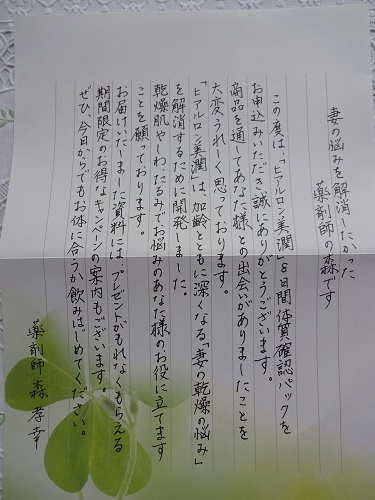 妻の悩みを解消したかった
薬剤師の森です
この度は、「ヒアルロン美潤」8日間体質確認パックを
お申込みいただき、誠にありがとうございます。
商品を通してあなた様との出会いがありましたことを
大変うれしく思っております。
「ヒアルロン美潤」は、加齢とともに深くなる「妻の乾燥の悩み」
を解消するために開発しました。
乾燥肌やしわ・たるみでお悩みのあなた様のお役に立てます
ことを願っております。
お届けいたしました資料には、プレゼントがもれなくもらえる
期間限定のお得なキャンペーンの案内もございます。
ぜひ、今日からでもお体に合うか飲みはじめてください。
薬剤師 森 孝幸